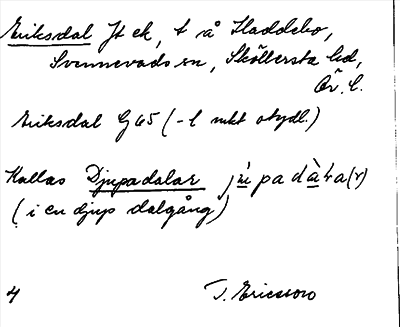 Eriksdal Jt ek, t å Haddebo,
Svennevads sn, Sköllersta hd,
Ör. l.
Eriksdal G65 (-l mkt otydl.)
Kallas Djupadalar
(i en djup dalgång)
4 T. Ericsson